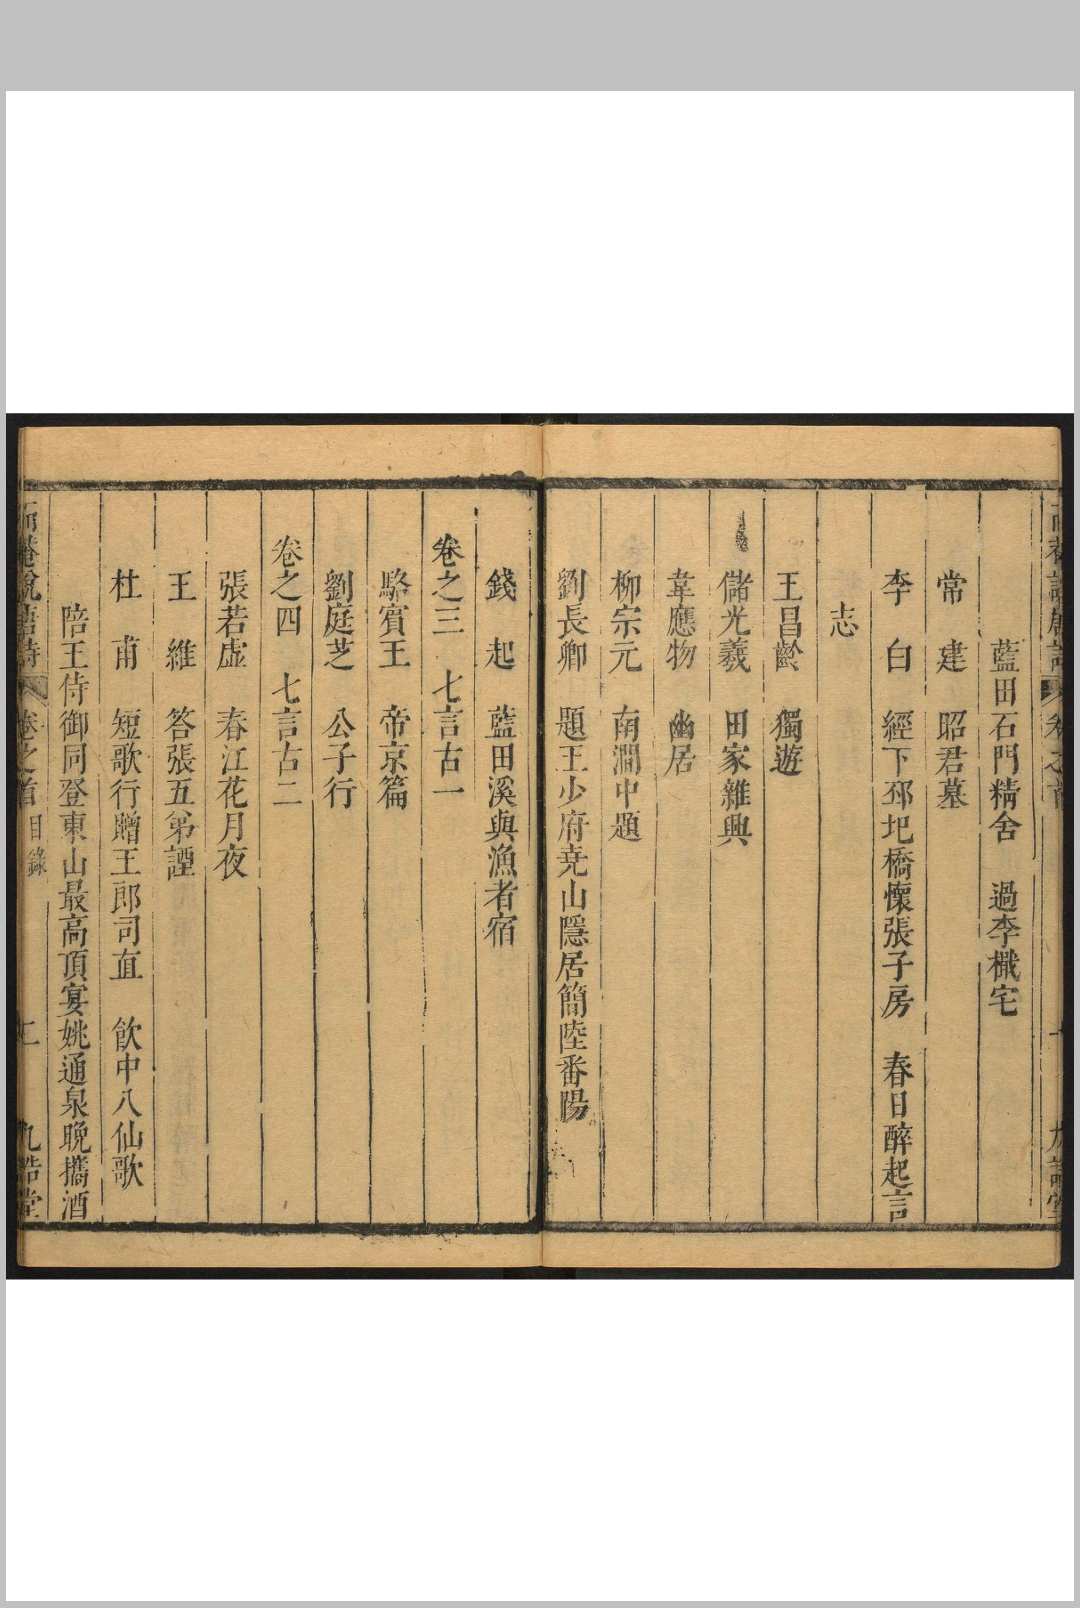 藍田石門精舍　過李檝宅
常　建　昭君墓
李　白　經下邳圯橋懷張子房　春日醉起言
志
王昌齡　獨遊
儲光羲　田家雜興
韋應物　幽居
柳宗元　南澗中題
劉長卿　題王少府尭山隱居簡陸番陽
錢　起　藍田溪與漁者宿
卷之三　七言古一
駱賓王　帝京篇
劉庭芝　公子行
卷之四　七言古二
張若虛　春江花月夜
王　維　答張五弟諲
杜　甫　短歌行贈王郎司直　飲中八仙歌
陪王侍御同登東山最高頂宴姚通泉晚攜酒
而菴說唐詩　卷之首　目錄　九誥堂